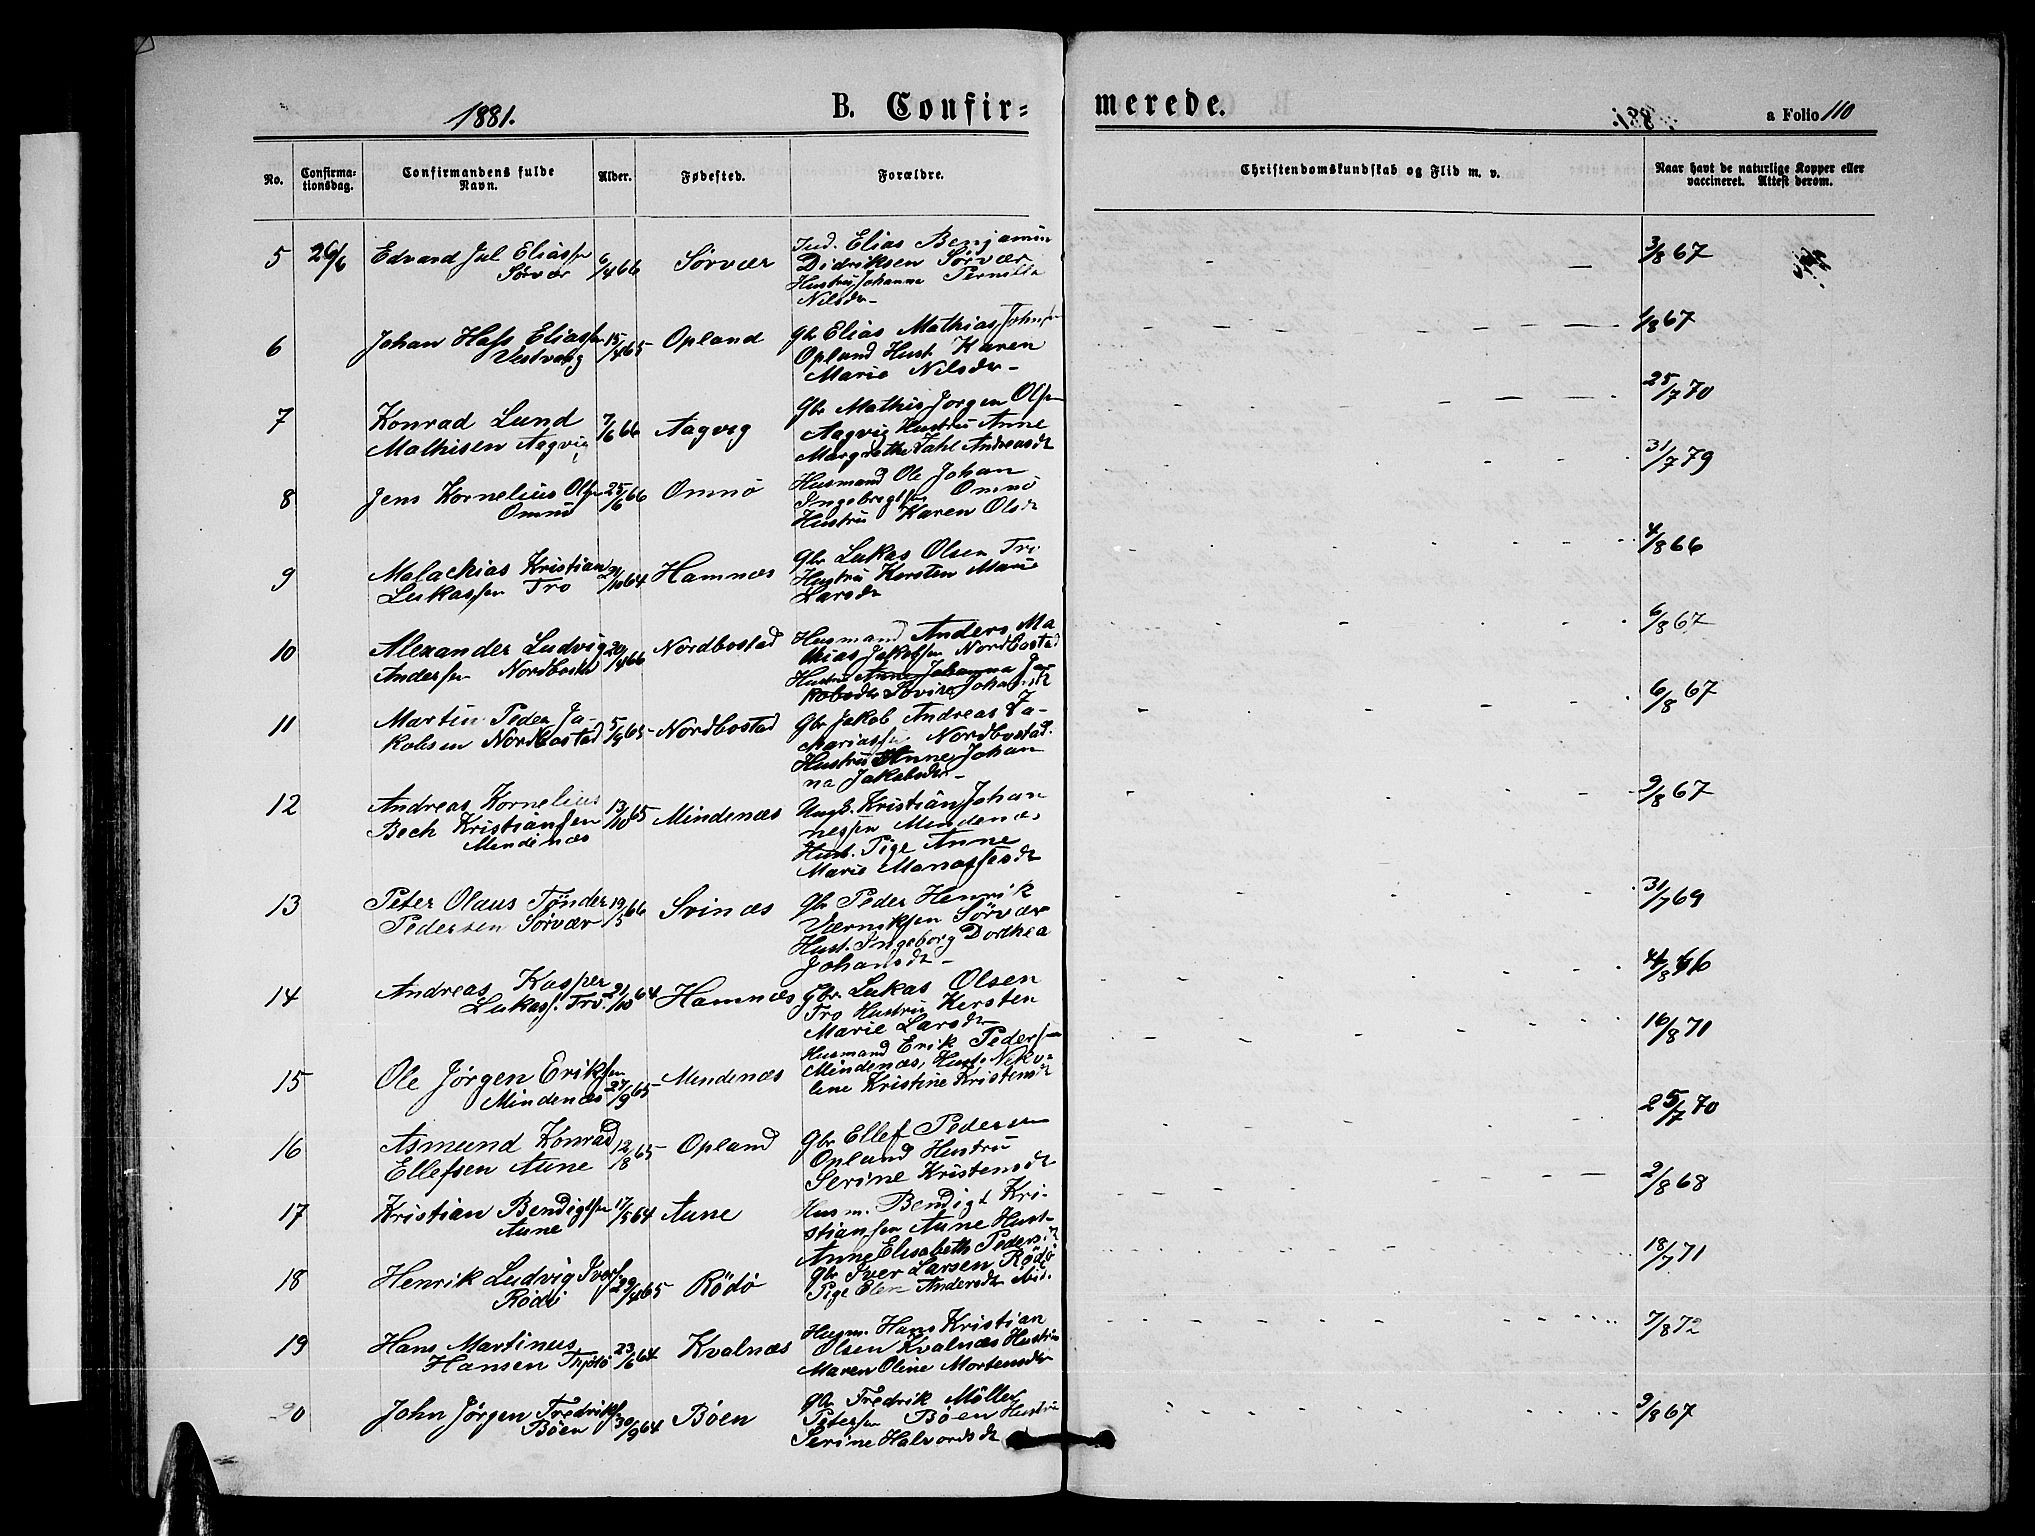 1881.
B. Confir=
merede.
a Folio 110
No.
Confirma-
tionsdag.
Confirmandens fulde
Navn.
Alder.
Fødested.
Forældre.
Christendomskundskab og Flid m. v.
Naar havt de naturlige Kopper eller
vaccineret. Attest derom.
5 26/6 Edvard Jul Eliassen 6/4 66 Sörvær Ind. Elias Benjamin 3/8 67
Sörvær Didriksen Sörvær
Hustru Johanna Pernilla
Nilsdr
6 Johan Hass Eliassen 15/4 65 Opland Gbr Elias Mathias Johnsen 1/8 67
Vestvaag Opland Hust Karen
Marie Nilsdr
7 Konrad Lund 7/6 66 Aagvig Gbr Mathis Jorgen Olsen 25/7 70
Mathisen Aagvig Aagvig Hustru Anne
Margrethe Zahl Andreasdr
8 Jens Kornelius Olsen 25/6 66 Omnö Husmand Ole Johan 31/7 79
Omnö Ingebregtsen Omnö
Hustru Karen Olsdr
9 Malachias Kristian 21/10 64 Hamnæs Gbr Lukas Olsen Tro 4/8 66
Lukassen Tro Hustru Kersten Marie
Larsdr
10 Alexander Ludvig 20/4 66 Nordbostad Husmand Anders Ma 6/8 67
Andersen Nordbostad thias Jakobsen Nordbostad
Hustru Anne Johanna Ja-
kobsdr Lovise Johansdr
11 Martin Peder Ja- 5/9 65 Nordbostad Gbr Jakob Andreas Za- 6/8 67
kobsen Nordbostad kariassen Nordbostad.
Hustru Anne Johan
na Jakobsdr
12 Andreas Kornelius 13/10 65 Mindenæs Ungk. Kristian Johan 2/8 67
Bech Kristiansen nessen Mindenæs
Mindenæs Hust. Pige Anne
Marie Manassesdr
13 Peter Olaus Tönder 19/5 66 Svinæs Gbr Peder Henrik 31/7 69
Pedersen Sörvær Værniksen Sörvær
Hust. Ingeborg Dorthea
Johansdr
14 Andreas Kasper 21/10 64 Hamnæs Gbr Lukas Olsen 4/8 66
Lukass. Tro. Tro Hustru Kersten
Marie Larsdr
15 Ole Jörgen Eriksen 27/9 65 Mindenæs Husmand Erik Pedersen 16/8 71
Mindenæs Mindenæs, Hust. Niko=
line Kristine Kristensdr
16 Asmund Konrad 12/8 65 Opland Gbr Ellef Pedersen 25/7 70
Ellefsen Aune Opland Hustru
Serine Kristensdr
17 Kristian Bendigtsen 17/5 64 Aune Husm. Bendigt Kri- 2/8 68
Aune stiansen Aune Hust-
Anne Elisabeth Pedersdr
18 Henrik Ludvig Ivers. 29/4 65 Rödö Gbr Iver Larsen Rödö 18/7 71
Rödö Pige Elen Andersdr ibid.
19 Hans Martinus 23/6 64 Kvalnæs Husm. Hans Kristian 7/8 72
Hansen Thjötö Olsen Kvalnæs Hustru
Maren Oline Mortensdr
20 John Jörgen Fredriks. 30/9 64 Böen Gbr Fredrik Möller 2/8 67
Böen Petersen Böen Hustru
Serine Halvordsdr